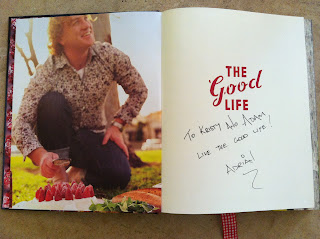 THE
Good
LIFE
TO KRISTY AND ADAM
LIVE THE GOOD LIFE!
ADRIAN